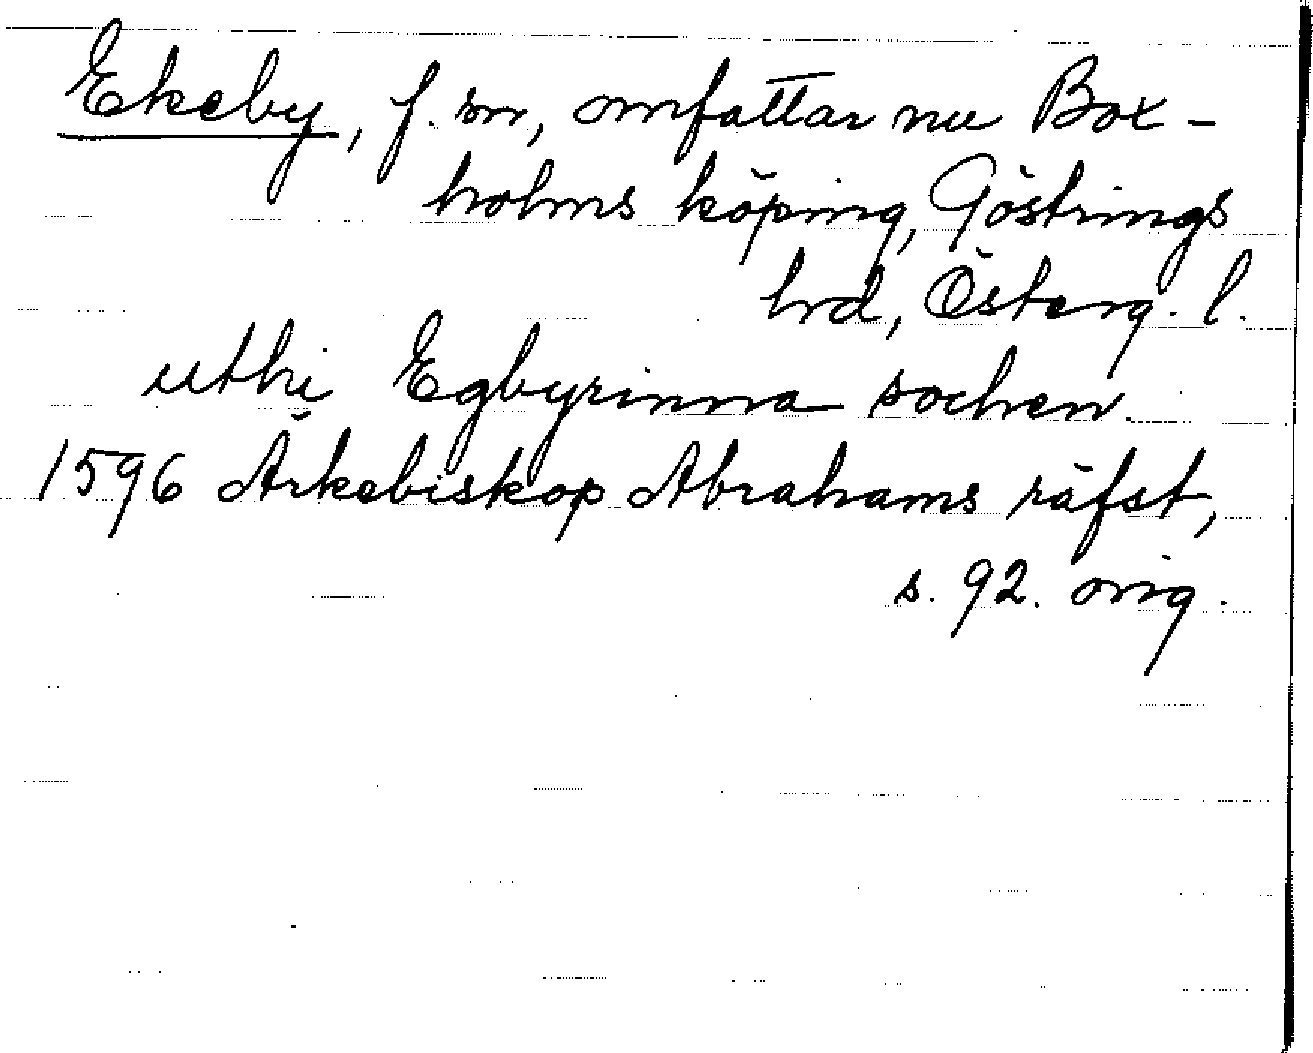 Ekeby, f. sn, omfattar nu Box-
holms köping, Göstrings
hrd, Österg. l.
uthi Egbyrinna sochen
1596 Ärkebiskop Abrahams räfst,
s. 92. orig.